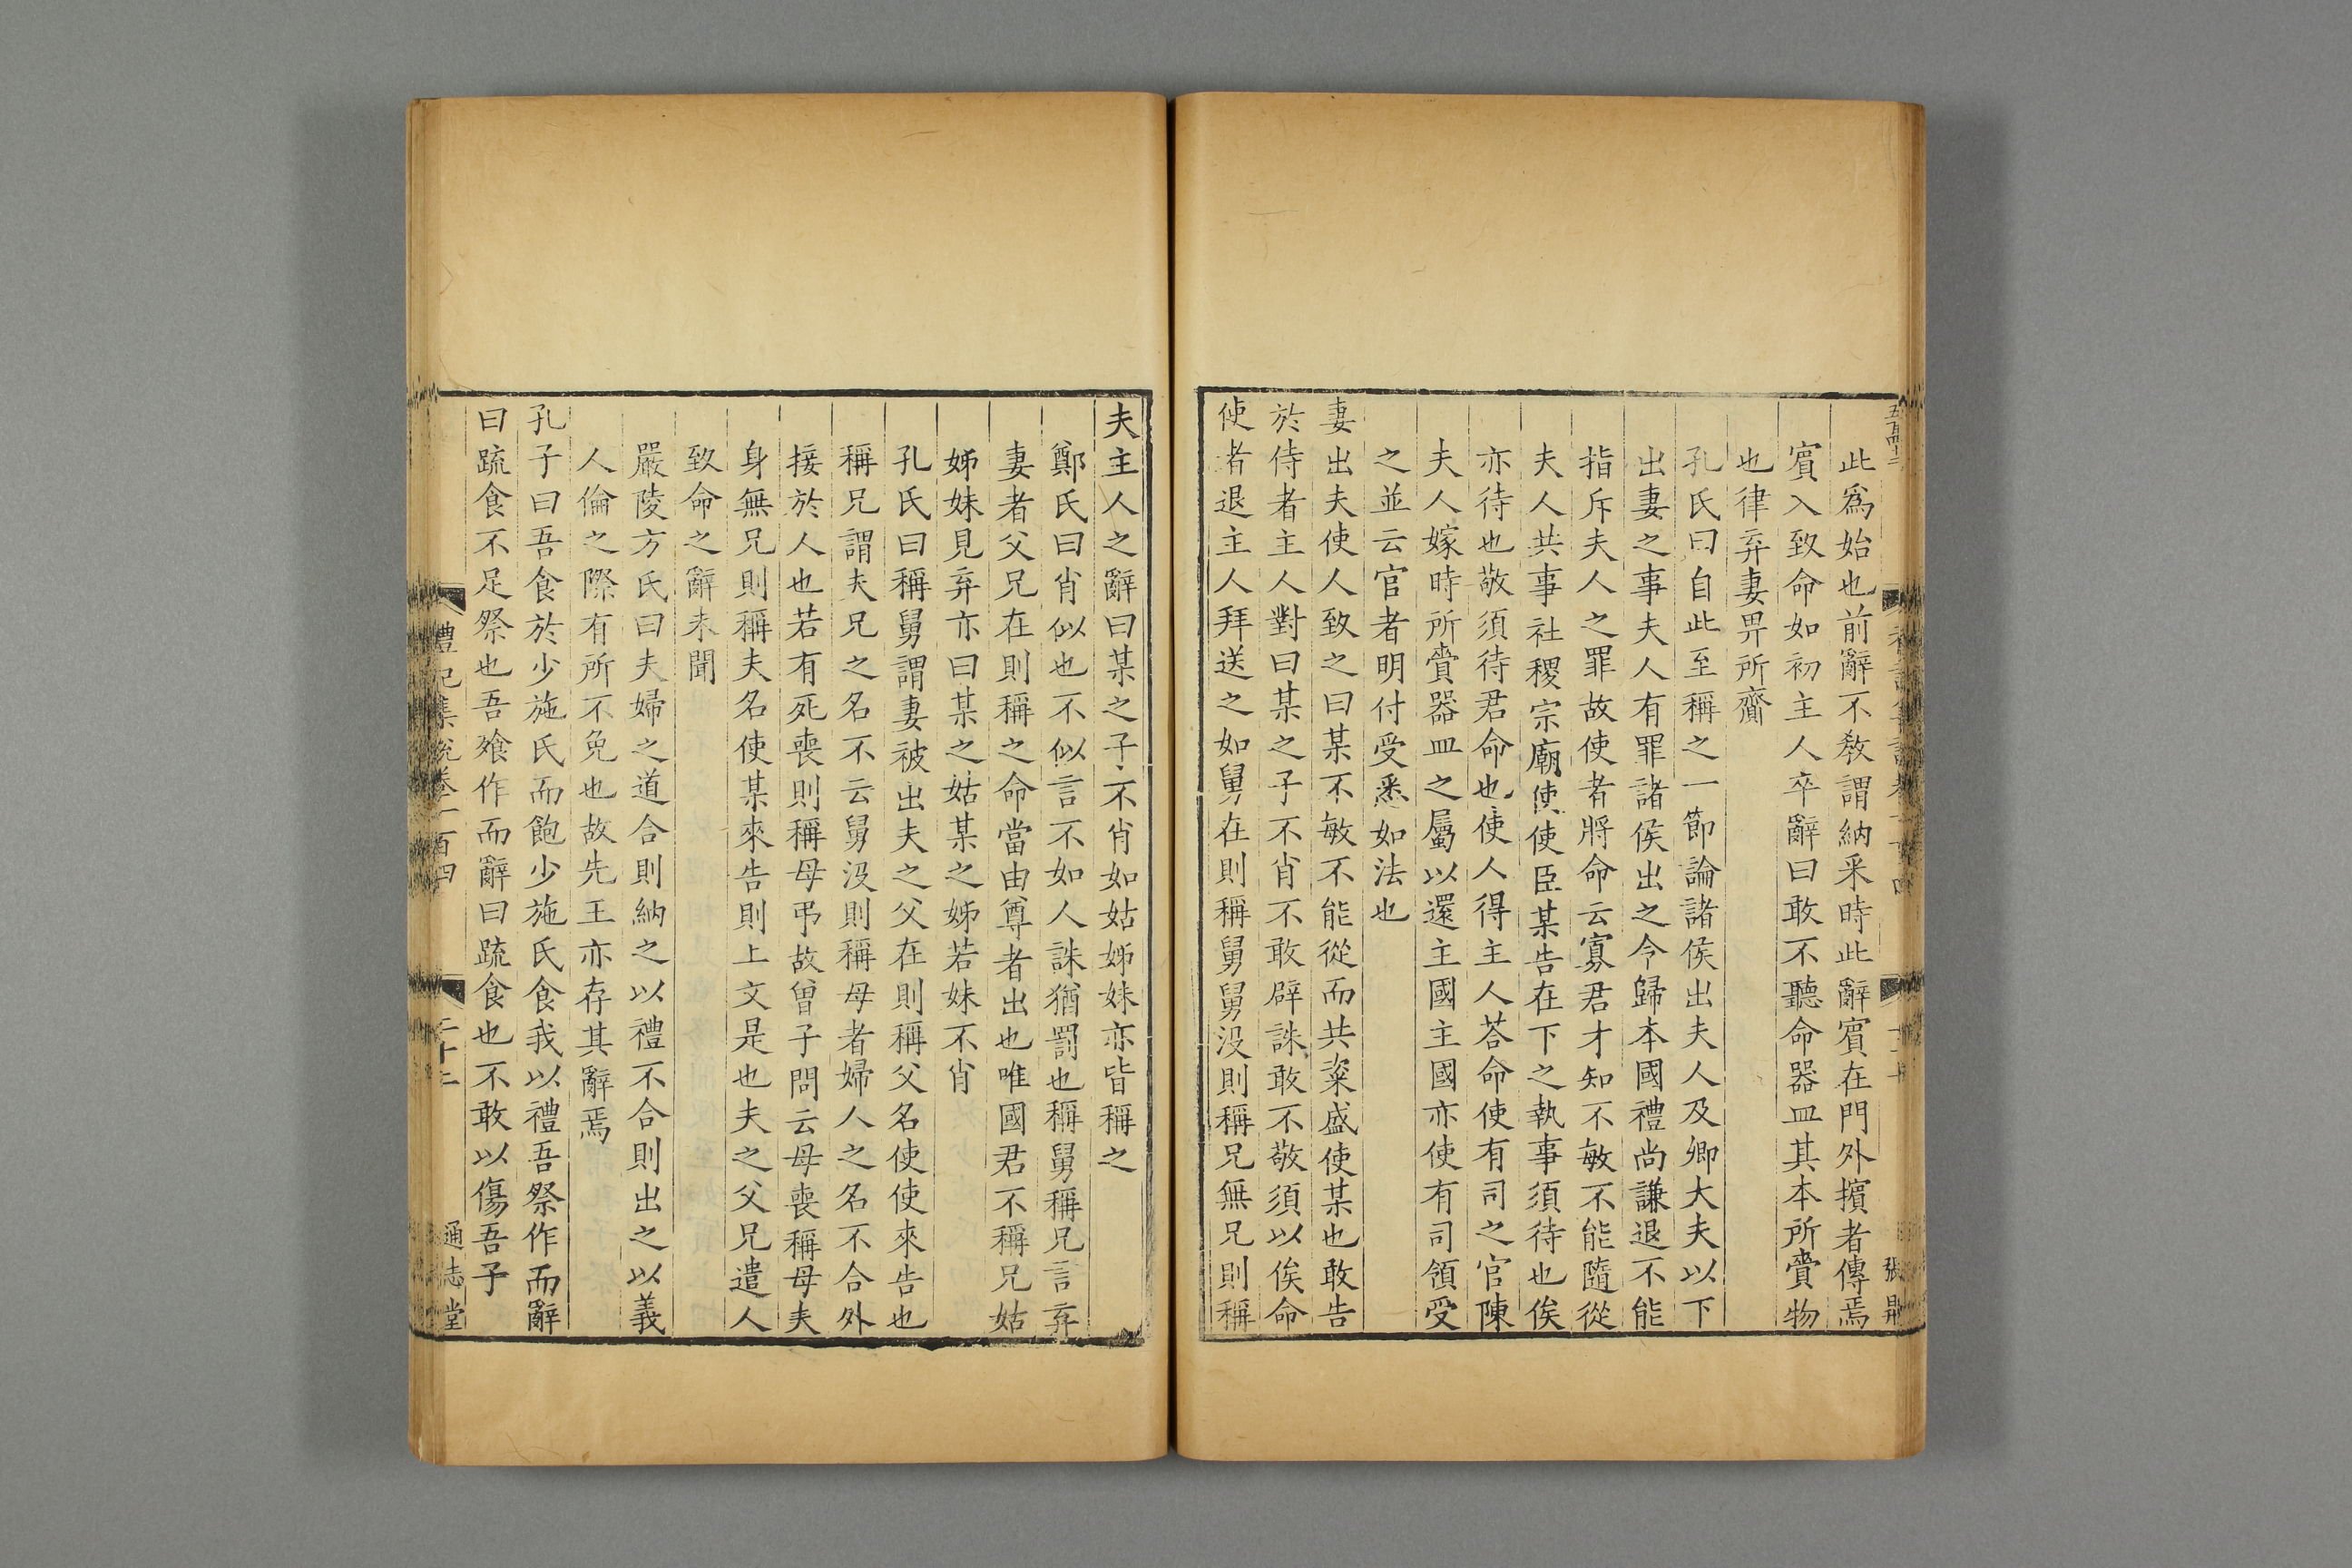 此爲始也前辭不敎謂納采時此辭賓在門外擯者傳焉
賓入致命如初主人卒辭曰敢不聽命器皿其本所賷物
也律弃妻畀所齎
孔氏曰自此至稱之一節論諸侯出夫人及卿大夫以下
出妻之事夫人有罪諸侯出之令歸本國禮尚謙退不能
指斥夫人之罪故使者將命云寡君才知不敏不能隨從
夫人共事社稷宗廟使使臣某告在下之執事須待也俟
亦待也敬須待君命也使人得主人荅命使有司之官陳
夫人嫁時所賷器皿之屬以還主國主國亦使有司領受
之並云官者明付受悉如法也
妻出夫使人致之曰某不敏不能從而共粢盛使某也敢告
於侍者主人對曰某之子不肖不敢辟誅敢不敬須以俟命
使者退主人拜送之如舅在則稱舅舅没則稱兄無兄則稱
夫主人之辭曰某之子不肖如姑姊妹亦皆稱之
鄭氏曰肖似也不似言不如人誅猶罰也稱舅稱兄言弃
妻者父兄在則稱之命當由尊者出也唯國君不稱兄姑
姊妹見弃亦曰某之姑某之姊若妹不肖
孔氏曰稱舅謂妻被出夫之父在則稱父名使使來告也
稱兄謂夫兄之名不云舅没則稱母者婦人之名不合外
接於人也若有死喪則稱母弔故曾子問云母喪稱母夫
身無兄則稱夫名使某來告則上文是也夫之父兄遣人
致命之辭未聞
嚴陵方氏曰夫婦之道合則納之以禮不合則出之以義
人倫之際有所不免也故先王亦存其辭焉
孔子曰吾食於少施氏而飽少施氏食我以禮吾祭作而辭
曰疏食不足祭也吾飱作而辭曰疏食也不敢以傷吾子
禮記集說卷一百四
二十二
通志堂